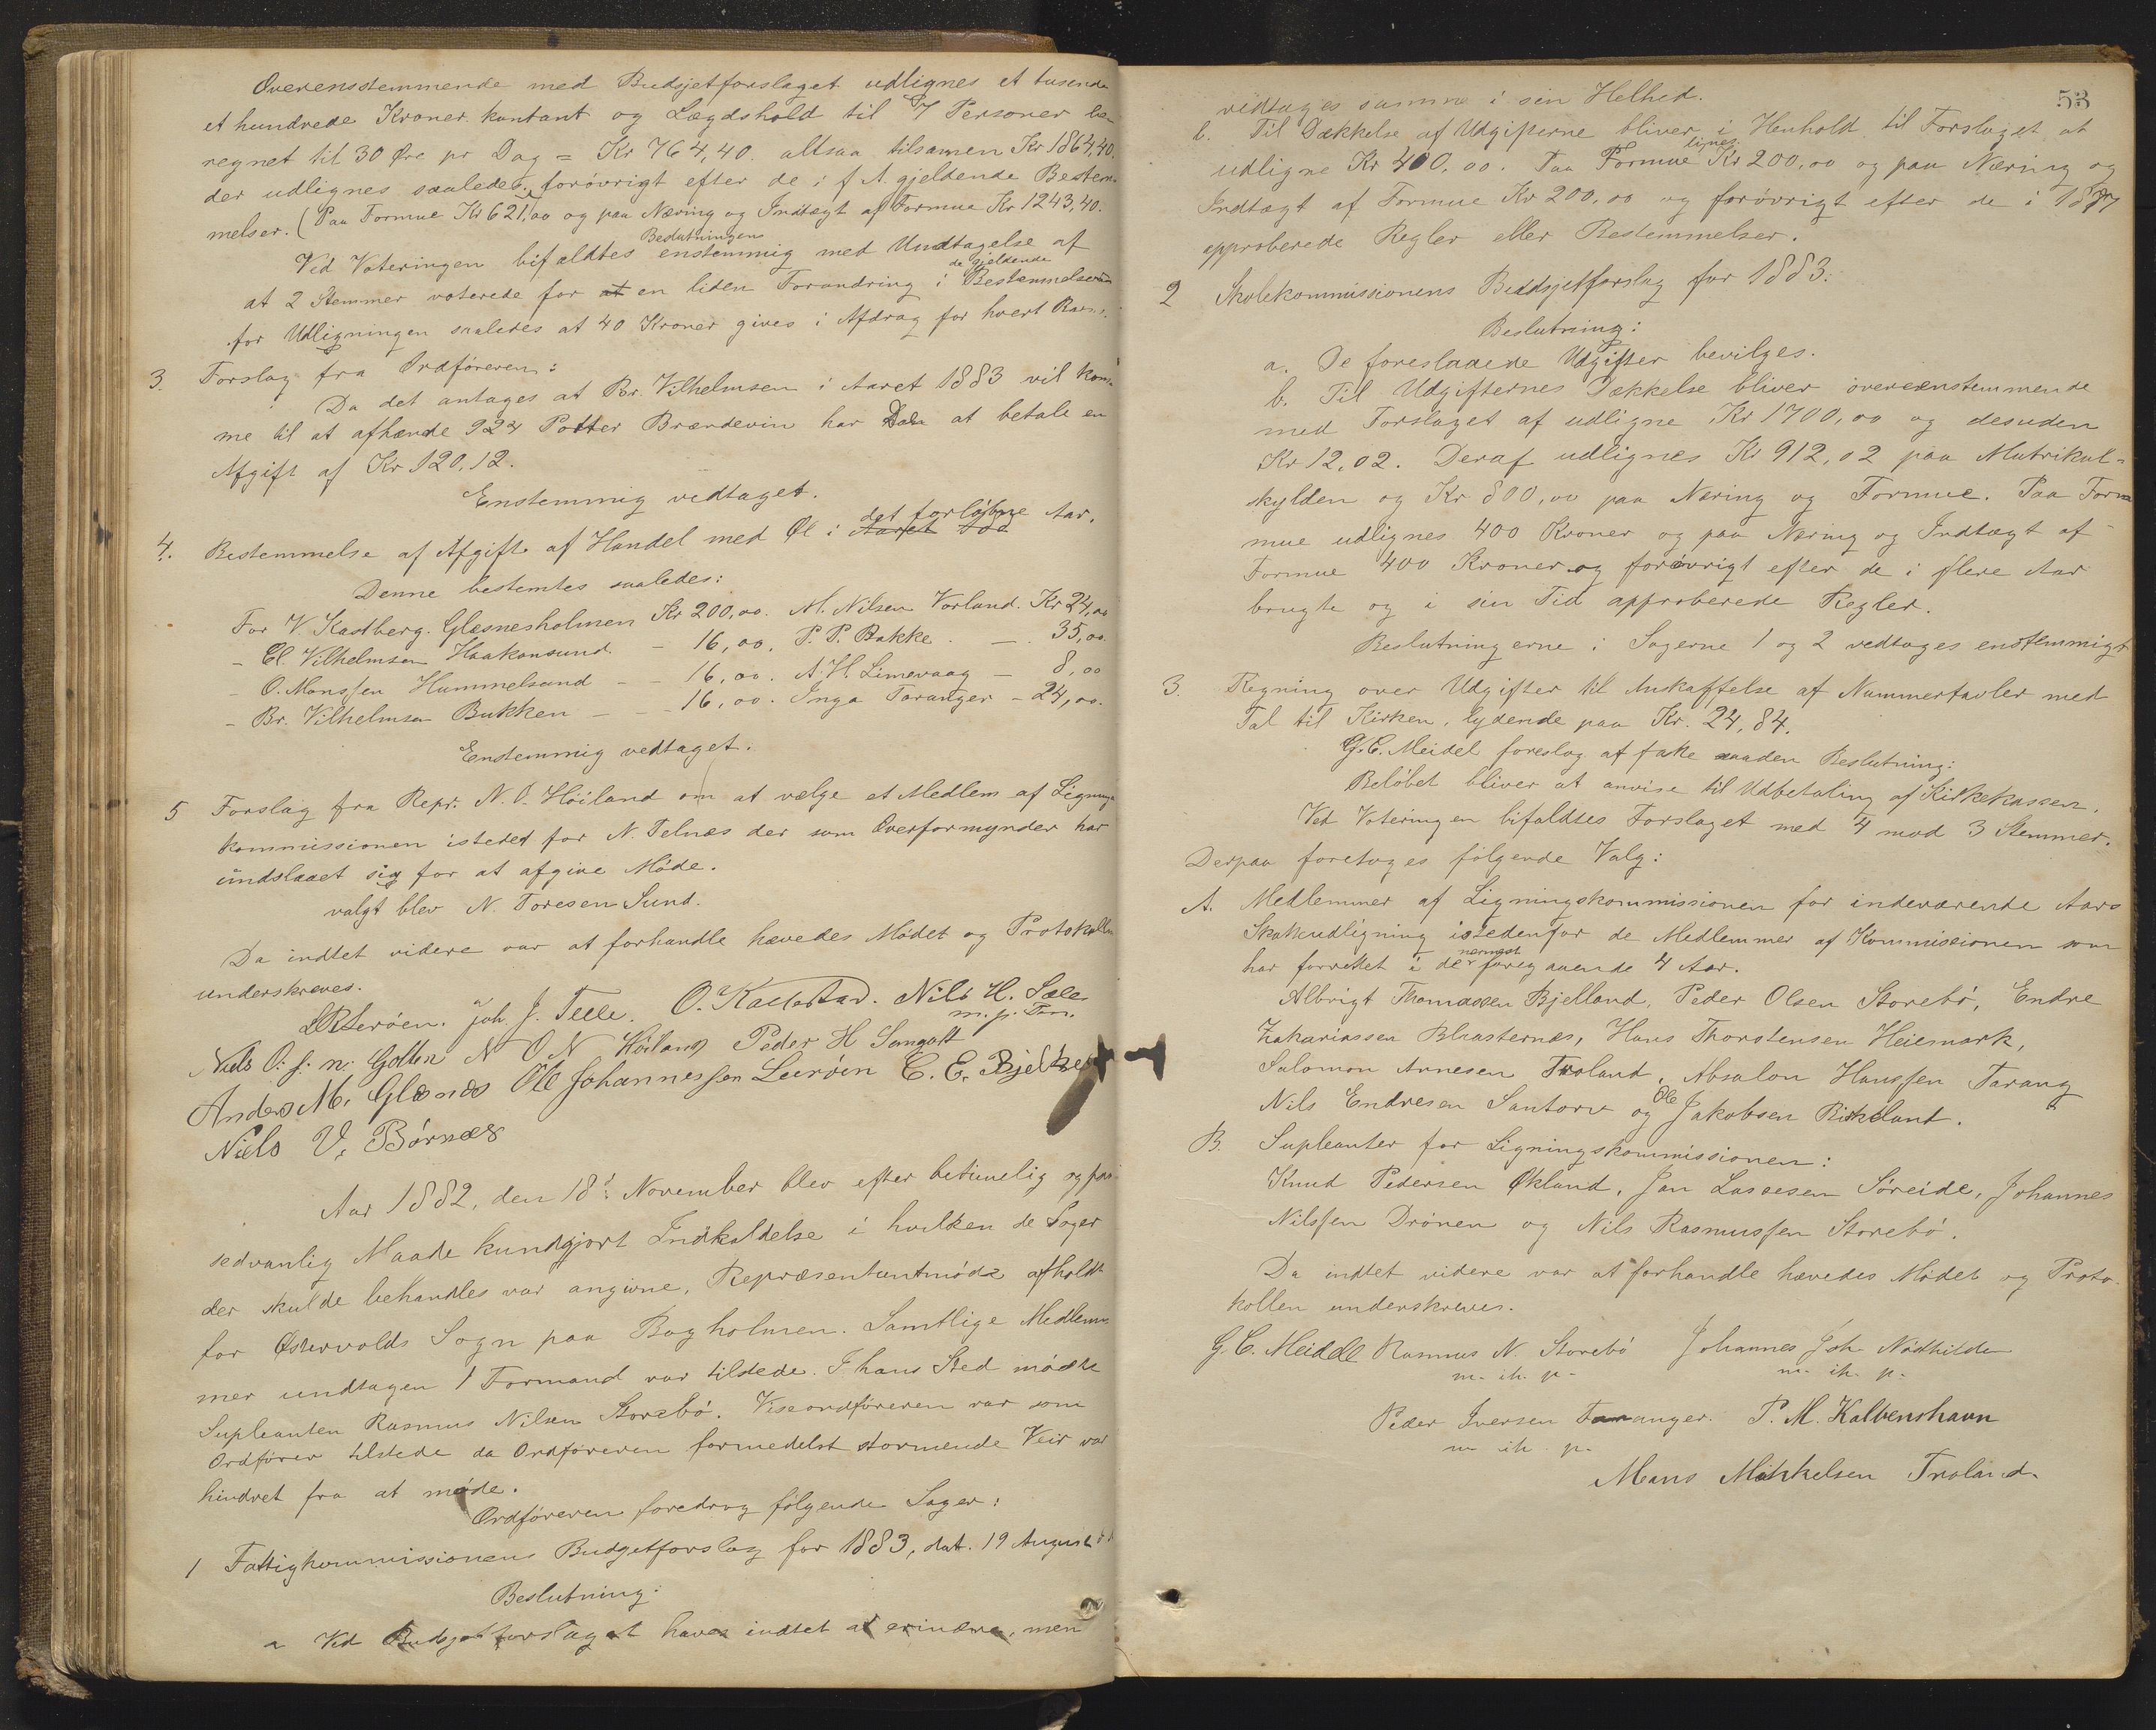 Overensstemmende med Budsjetforslaget udlignes et tusende
et hundrede Kroner kontant og Lægdshold til 7 Personer be-
regnet til 30 Øre pr Dag = Kr 764,40. altsaa tilsamen Kr 1864,40.
der udlignes saaledes, forövrigt efter de i f A. gjeldende Bestem-
melser. (Paa Formue Kr 621,00 og paa Næring og Indtægt af Formue Kr 1243,40.
Ved Voteringen bifaldtes Beslutningen enstemmig med Undtagelse af
at 2 Stemmer voterede for at en liden Forandring i de gjeldende Bestemmelser
for Udligningen saaledes at 40 Kroner gives i Afdrag for hvert Barn.
3. Forslag fra Ordföreren:
Da det antages at Br. Vilhelmsen i Aaret 1883 vil kom-
me til at afhænde 924 Potter Brændevin har Den at betale en
Afgift af Kr 120,12.
Enstemmig vedtaget.
4. Bestemmelse af Afgift af Handel med Øl i Aaret det forløbne Aar.
Denne bestemtes saaledes:
For V. Kastberg. Glesnesholmen Kr 200,00. M. Nilsen Vorland. Kr 24,00
- El. Vilhelmsen Haakonsund. - 16,00. P. P. Bakke. - 35,00.
- O. Monssen Hummelsund - - 16,00. A. H. Limevaag - 8,00
- Br. Vilhelmsen Bukken - - 16,00. Inga Taranger - 24,00.
Enstemmig vedtaget.
5 Forslag fra Repr. N. O. Höiland om at vælge et Medlem af Lignings
kommissionen istedet for N. Telnæs der som Overformynder har
undslaaet sig for at afgive Möde.
valgt blev N. Toresen Sund.
Da indtet videre var at forhandle hævedes Mödet og Protokollen
underskreves.
Joh. J. Telle. O. Kallestad. Nils H. Sæle
m. p. Pen.
Niels O. f. n. Golten N O N Höiland Peder H Sangolt
Anders M. Glesnes Ole Johannessen Leeröen C. E. Bjelke
Niels V. Börnes
Aar 1882, den 18d: November blev efter betimelig og paa
sedvanlig Maade kundgjort Indkaldelse i hvilken de Sager
der skulde behandles var angivne, Repræsentantmöde afholdt
for Østervolds Sogn paa Bagholmen. Samtlige Medlem-
mer undtagen 1 Formand var tilstede. I hans Sted mödte
Supleanten Rasmus Nilsen Storebö. Viseordföreren var som
Ordfører tilstede da Ordföreren formedelst stormende Veir var
hindret fra at möde.
Ordföreren foredrog fölgende Sager:
1 Fattigkommissionens Budgetforslag for 1883, dat. 19 August
Beslutning:
a Ved Budsjetforslaget haves indtet at erindre, men
53
vedtages samme i sin Helhed.
b. Til Dækkelse af Udgifterne bliver i Henhold til Forslaget at
udligne Kr 400,00. Paa Formue lignes Kr 200,00 og paa Næring og
Indtægt af Formue Kr 200,00 og forövrigt efter de i
approberede Regler eller Bestemmelser.
2 Skolekommissionens Buddsjetforslag for 1883:
Beslutning:
a. De foreslaaede Udgifter bevilges.
b. Til Udgifternes Dækkelse bliver overeenstemmende
med Forslaget af udligne Kr 1700,00 og desuden
Kr 12,02. Deraf udlignes Kr 912,02 paa Matrikul-
skylden og Kr 800,00 paa Næring og Formue. Paa For-
mue udlignes 400 Kroner og paa Næring og Indtægt af
Formue 400 Kroner og forövrigt efter de i flere Aar
brugte og i sin Tid approberede Regler.
Beslutningerne i Sagerne 1 og 2 vedtages enstemmigt
3. Regning over Udgifter til Anskaffelse af Nummertavler med
Tal til Kirken, lydende paa Kr. 24,84.
G. C. Meidel foreslog at fatte saaden Beslutning:
Belöbet bliver at anvise til Udbetaling af Kirkekassen.
Ved Voteringen bifaldtes Forslaget med 4 mod 3 Stemmer.
Derpaa foretoges fölgende Valg:
A. Medlemmer af Ligningskommissionen for indeværende Aars
Skatteudligning istedenfor de Medlemmer af Kommissionen som
har forrettet i de nærmest foregaaende 4 Aar.
Albrigt Thomassen Bjelland, Peder Olsen Storebö, Endre
Zakariassen Blæsternæs, Hans Thorstensen Heiemark,
Salomon Arnesen Troland, Absalon Hanssen Tarang
Nils Endresen Santorv og Ole Jakobsen Birkeland.
B. Supleanter for Ligningskommissionen:
Knud Pedersen Økland, Jan Lassesen Söreide, Johannes
Nilssen Drönen og Nils Rasmussen Storebö.
Da indtet videre var at forhandle hævedes Mödet og Proto-
kollen underskreves.
G. C. Meidell Rasmus N. Storebö Johannes Joh. Nödtvidt
m. ih. p. m. ih. p.
Peder Iversen Taranger. P. M. Kalvenshavn
m. ih. p.
Mans Mikkelsen Troland.